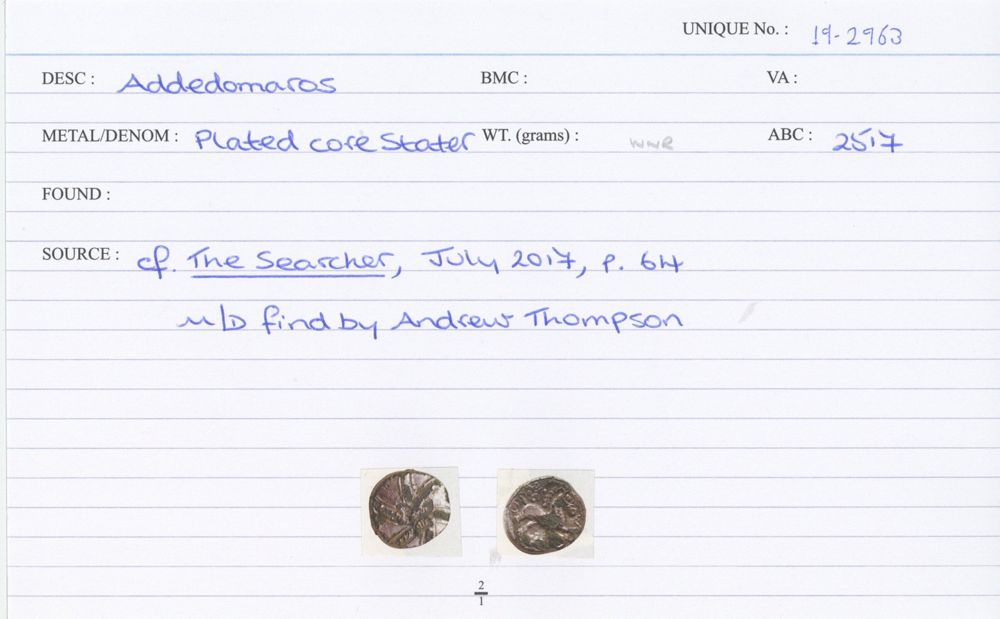 UNIQUE No. : 19-2963
DESC : Addedomaros BMC : VA :
METAL/DENOM : Plated core Stater WT. (grams) : WNR ABC : 2517
FOUND :
SOURCE : cf. The Searcher, July 2017, P. 64
M/D find by Andrew Thompson
2
1